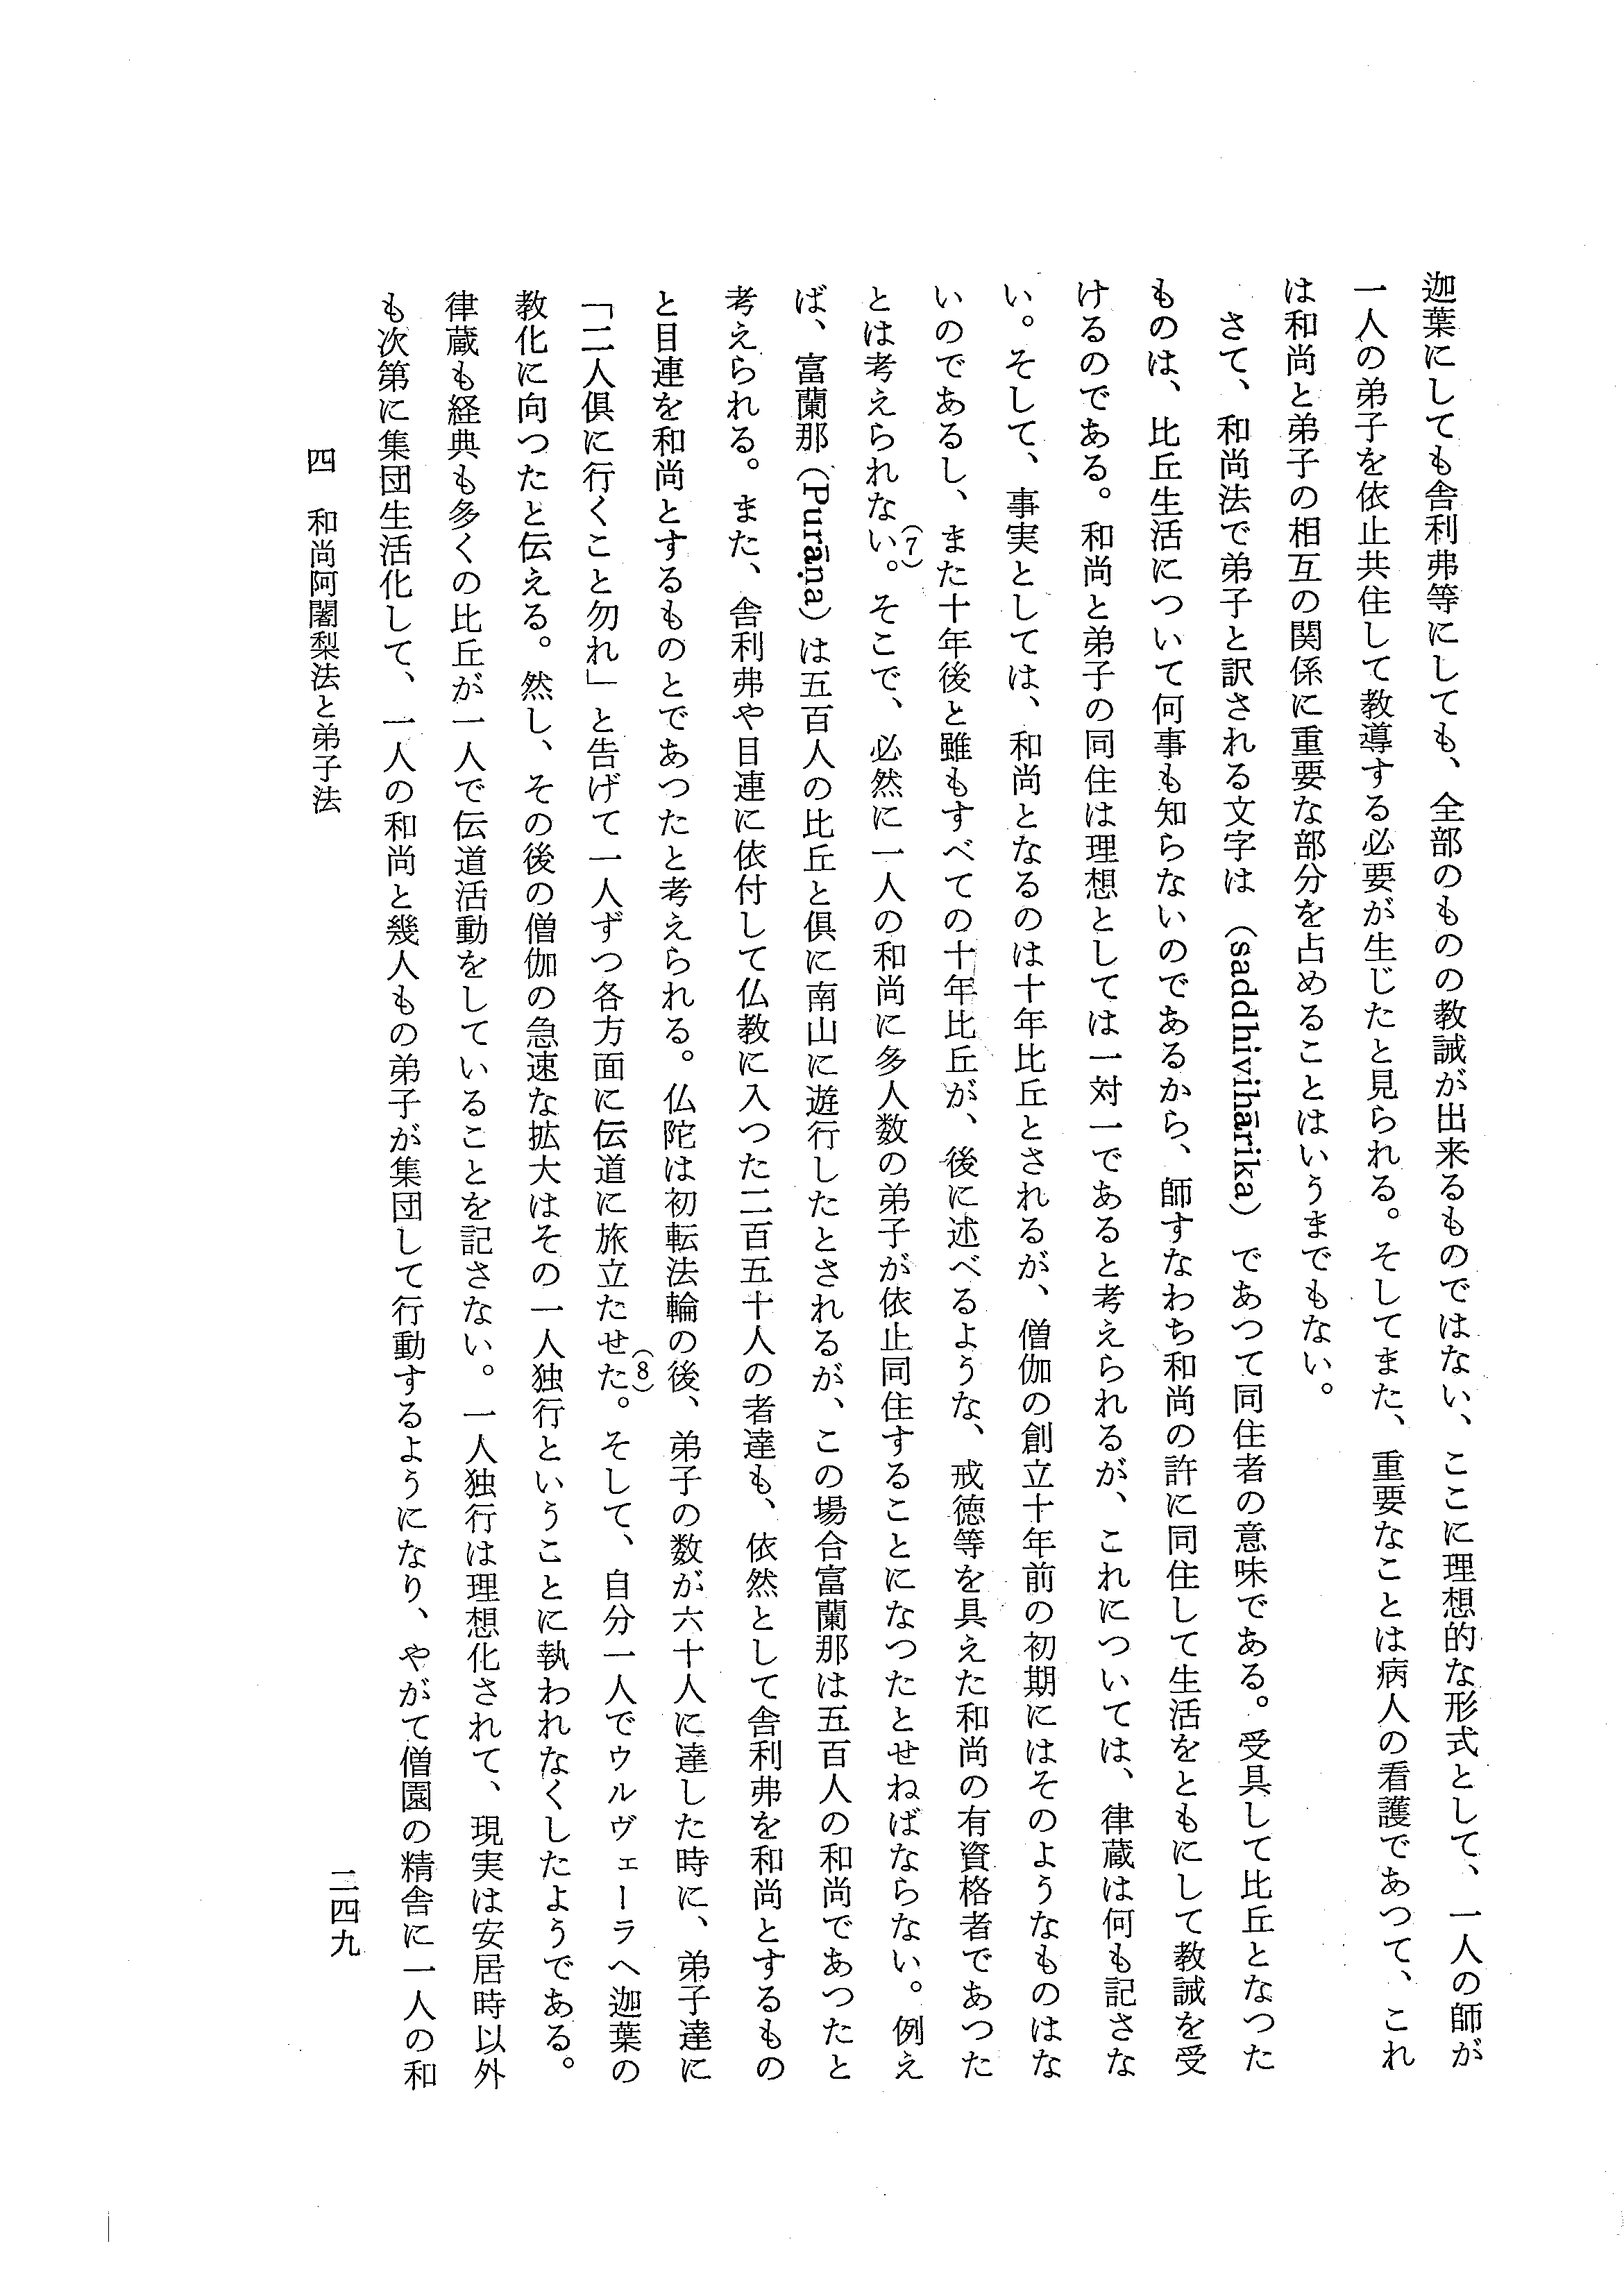 迦葉にしても舎利弗等にしても、全部のものの教誡が出来るものではない、ここに理想的な形式として、一人の師が
一人の弟子を依止共住して教導する必要が生じたと見られる。そしてまた、重要なことは病人の看護であつて、これ
は和尚と弟子の相互の関係に重要な部分を占めることはいうまでもない。
さて、和尚法で弟子と訳される文字は（saddhivihārika）であつて同住者の意味である。受具して比丘となつた
ものは、比丘生活について何事も知らないのであるから、師すなわち和尚の許に同住して生活をともにして教誡を受
けるのである。和尚と弟子の同住は理想としては一対一であると考えられるが、これについては、律蔵は何も記さな
い。そして、事実としては、和尚となるのは十年比丘とされるが、僧伽の創立十年前の初期にはそのようなものはな
いのであるし、また十年後と雖もすべての十年比丘が、後に述べるような、戒徳等を具えた和尚の有資格者であつた
とは考えられない（7）。そこで、必然に一人の和尚に多人数の弟子が依止同住することになつたとせねばならない。例え
ば、富蘭那（Purāṇa）は五百人の比丘と倶に南山に遊行したとされるが、この場合富蘭那は五百人の和尚であつたと
考えられる。また、舎利弗や目連に依付して仏教に入つた二百五十人の者達も、依然として舎利弗を和尚とするもの
と目連を和尚とするものとであつたと考えられる。仏陀は初転法輪の後、弟子の数が六十人に達した時に、弟子達に
「二人倶に行くこと勿れ」と告げて一人ずつ各方面に伝道に旅立たせた（8）。そして、自分一人でウルヴェーラへ迦葉の
教化に向つたと伝える。然し、その後の僧伽の急速な拡大はその一人独行ということに執われなくしたようである。
律蔵も経典も多くの比丘が一人で伝道活動をしていることを記さない。一人独行は理想化されて、現実は安居時以外
も次第に集団生活化して、一人の和尚と幾人もの弟子が集団して行動するようになり、やがて僧園の精舎に一人の和
四　和尚阿闍梨法と弟子法
二四九